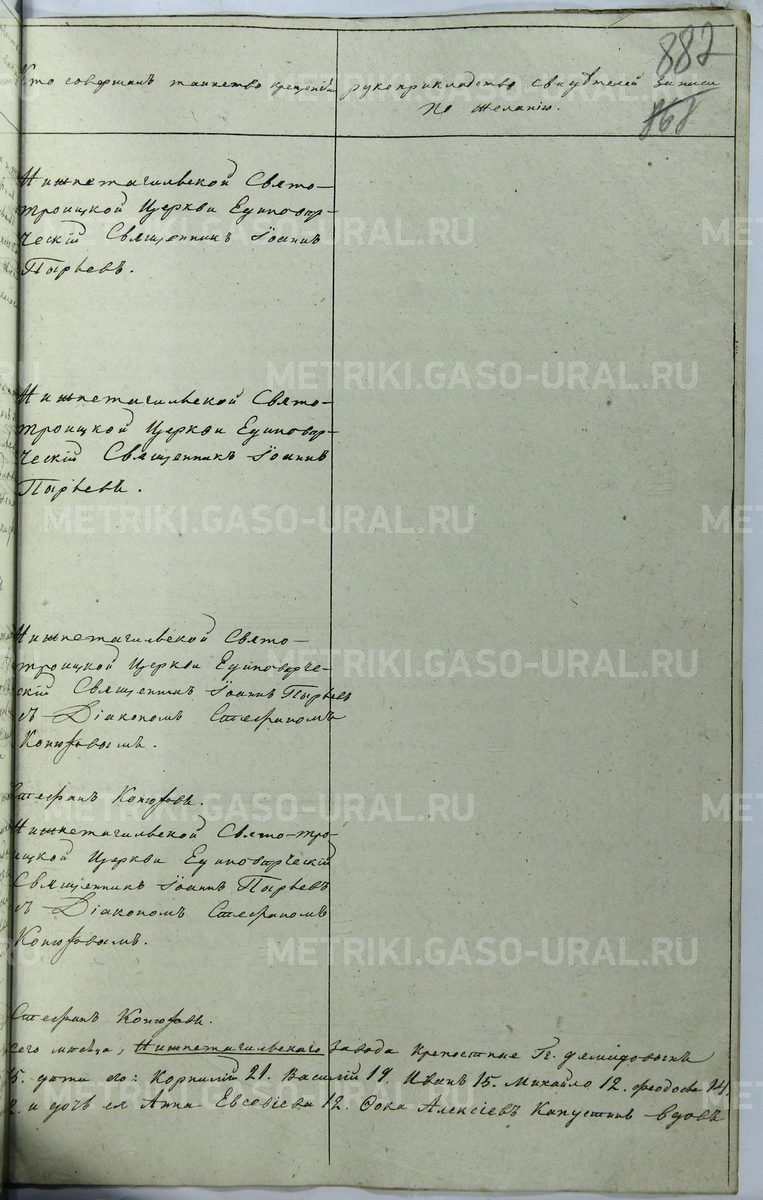 882
868
Кто совершалъ таинство крещенія
рукоприкладство свидѣтелей записи
по желанію.
Нижнетагильской Свято-
троицкой Церкви Единовѣр-
ческій Священникъ Іоаннъ
Пырьевъ.
Нижнетагильской Свято-
троицкой Церкви Единовѣр-
ческій Священникъ Іоаннъ
Пырьевъ.
Нижнетагильской Свято-
троицкой Церкви Единовѣрче-
скій Священникъ Іоаннъ Пырьевъ
съ Діакономъ Стефаномъ
Конюховымъ.
Стефанъ Конюховъ.
Нижнетагильской Свято-тро-
ицкой Церкви Единовѣрческій
Священникъ Іоаннъ Пырьевъ
съ Діакономъ Стефаномъ
Конюховымъ.
Стефанъ Конюховъ.
сего мѣсяца, Нижнетагильскаго завода крепостные Гг. Демидовыхъ
5. дѣти его: Корнилій 21. Василій 19. Иванъ 15. Михайло 12. Феодосья 14.
2. и дочь ея Анна Евсевіева 12. Фока Алексіевъ Капустинъ вдовъ
METRIKI.GASO-URAL.RU